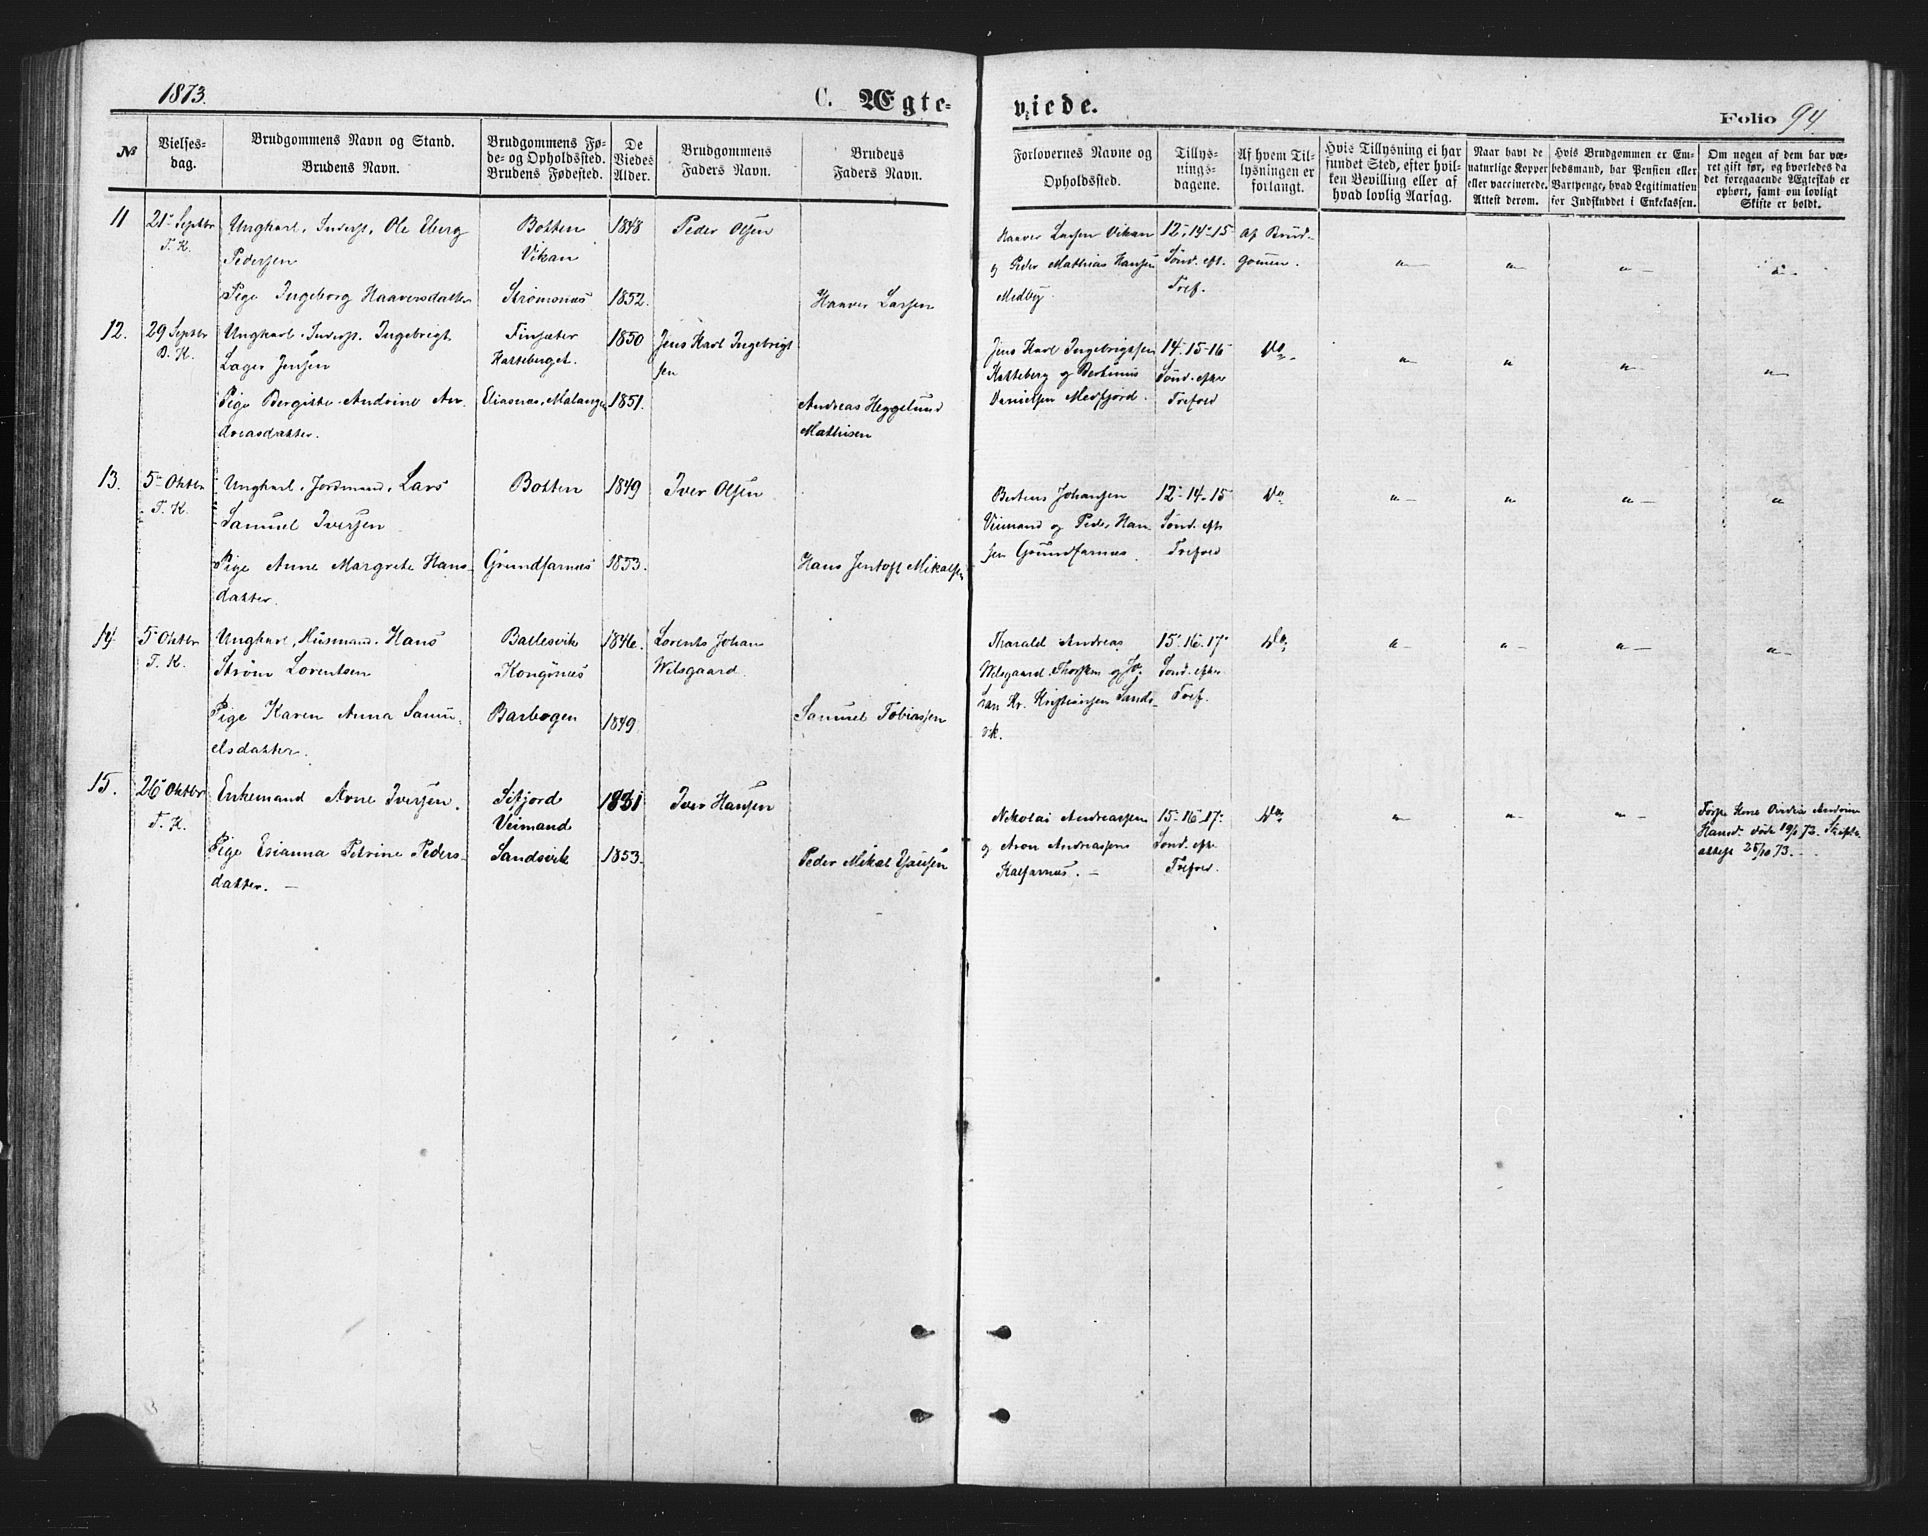 1873.
C. Ægte-
viede.
Folio 94
№
Vielses-
dag.
Brudgommens Navn og Stand.
Brudens Navn.
Brudgommens Fø-
de- og Opholdssted.
Brudens Fødested.
De
Viedes
Alder.
Brudgommens
Faders Navn.
Brudens
Faders Navn.
Forlovernes Navne og
Opholdssted.
Tillys-
nings-
dagene.
Af hvem Til-
lysningen er
forlangt.
Hvis Tillysning ei har
fundet Sted, efter hvil-
ken Bevilling eller af
hvad lovlig Aarsag.
Naar havt de
naturlige Kopper
eller vaccinerede.
Attest derom.
Hvis Brudgommen er Em-
bedsmand, har Pension eller
Vartpenge, hvad Legitimation
for Indskuddet i Enkekassen.
Om nogen af dem har væ-
ret gift før, og hvorledes da
det foregaaende Ægteskab er
ophørt, samt om lovligt
Skifte er holdt.
11
21 Septbr
T. K.
Ungkarl, Inders. Ole Eberg
Pedersen
Pige Ingeborg Haaversdatter
Botten
Vikan
Strømsnæs
1848
1852.
Peder Olsen
Haaver Larsen
Haaver Larsen Vikan
og Peder Mathias Hansen
Medby.
12-14-15
Sønd. eft.
Tref.
Af Brud-
gommen.
12.
29 Septbr
B. K.
Ungkarl. Inders. Ingebrigt
Lager Jensen
Pige Bergitte Andrine An-
dreasdatter.
Finsæter
Katteberget.
Eliasnæs, Malangen
1850
1851.
Jens Karl Ingebrigt
sen
Andreas Heggelund
Mathisen
Jens Karl Ingebrigtsen
Katteberg og Bertinus
Danielsen Medfjord.
14-15-16
Sønd. efter
Trefold
Do
13.
5 Oktbr
T. K.
Ungkarl, Jordmand, Lars
Samuel Iversen
Pige Anne Margrete Hans-
datter.
Botten
Grundfarnæs
1849
1853.
Iver Olsen
Hans Jentoft Mikalsen
Bertens Johansen
Veimand og Peder Han
sen Grundfarnæs.
12-14-15
Sønd. eft
Trefold
Do
14
5 Oktbr
T. K.
Ungkarl, Husmand. Hans
Strøm Lorentsen
Pige Karen Anna Samu-
elsdatter.
Ballesvik
Kongsnæs
Barbogen
1846.
1849
Lorents Johan
Wilsgaard.
Samuel Tobiassen
Tharald Andreas
Wilsgaard, Thorsken og Jo-
han Kr. Kristiansen Sands-
vik.
15-16-17
Sønd. efter
Tref.
Do
15.
26 Oktbr
T. K.
Enkemand Arne Iversen.
Pige Esianna Petrine Peders-
datter. —
Sifjord
Veimand
Sandsvik
1831
1853.
Iver Hansen
Peder Mikal Hansen
Nikolai Andreassen
og Aron Andreassens
Kalfarnæs. —
15-16-17
Sønd. eft
Trefold.
Do
Kone Andrine
Hansd. døde 19/1 73. Skifte-
attest 25/10 73. —